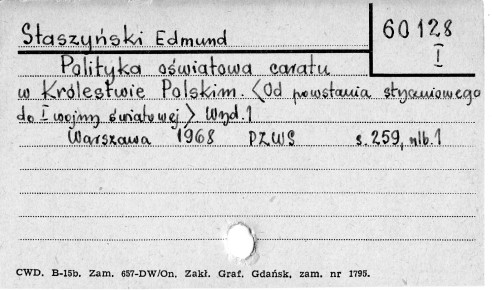 Staszyński Edmund
60128
I
Polityka oświatowa caratu
w Królestwie Polskim. <Od powstania styczniowego
do I wojny światowej> Wyd. 1
Warszawa 1968 PZWS s. 259, nlb. 1
CWD. B-15b. Zam. 657-DW/On. Zakł. Graf. Gdańsk, zam. nr 1795.